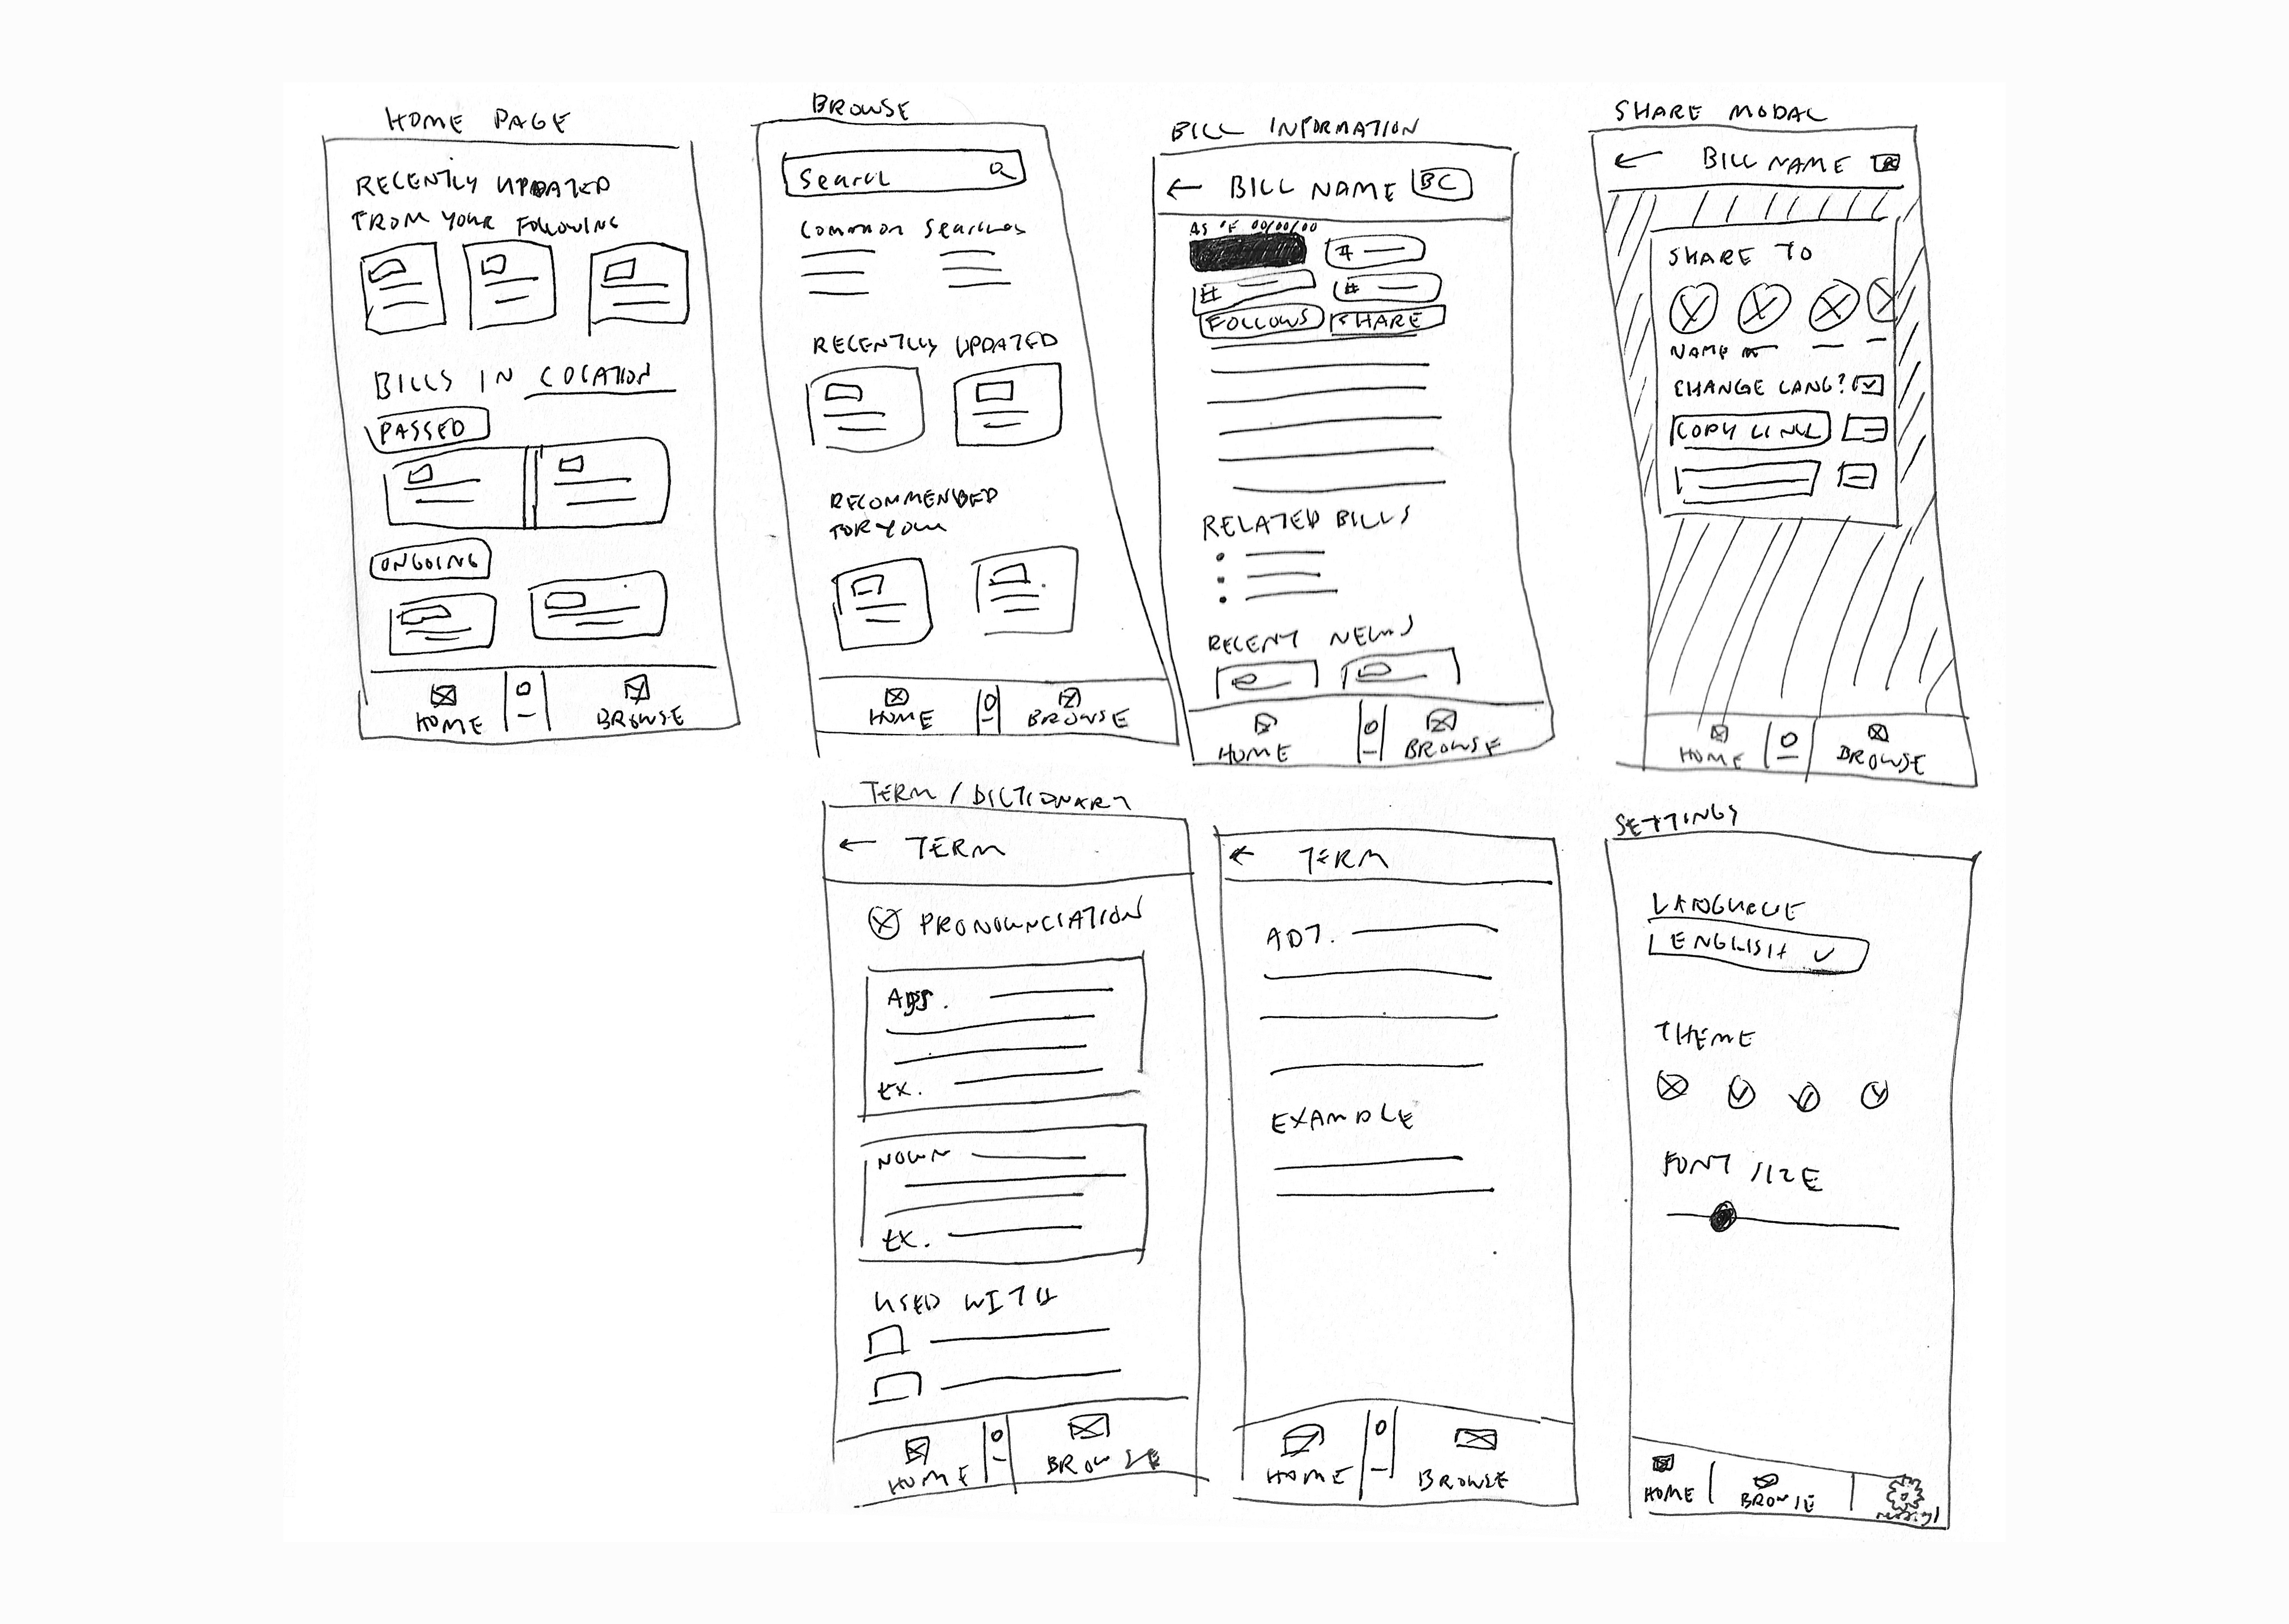 HOME PAGE
RECENTLY UPDATED
FROM YOUR FOLLOWING
BILLS IN LOCATION
PASSED
ONGOING
HOME
BROWSE
BROWSE
Search
Common Searches
RECENTLY UPDATED
RECOMMENDED
FOR YOU
HOME
BROWSE
BILL INFORMATION
← BILL NAME BC
AS OF 00/00/00
#
# #
FOLLOWS SHARE
RELATED BILLS
RECENT NEWS
HOME
BROWSE
SHARE MODAL
← BILL NAME
SHARE TO
NAME
CHANGE LANG?
COPY LINK
HOME
BROWSE
TERM / DICTIONARY
← TERM
PRONOUNCIATION
ADJ.
EX.
NOUN
EX.
USED WITH
HOME
BROWSE
← TERM
ADJ.
EXAMPLE
HOME
BROWSE
SETTINGS
LANGUAGE
ENGLISH
THEME
FONT SIZE
HOME
BROWSE